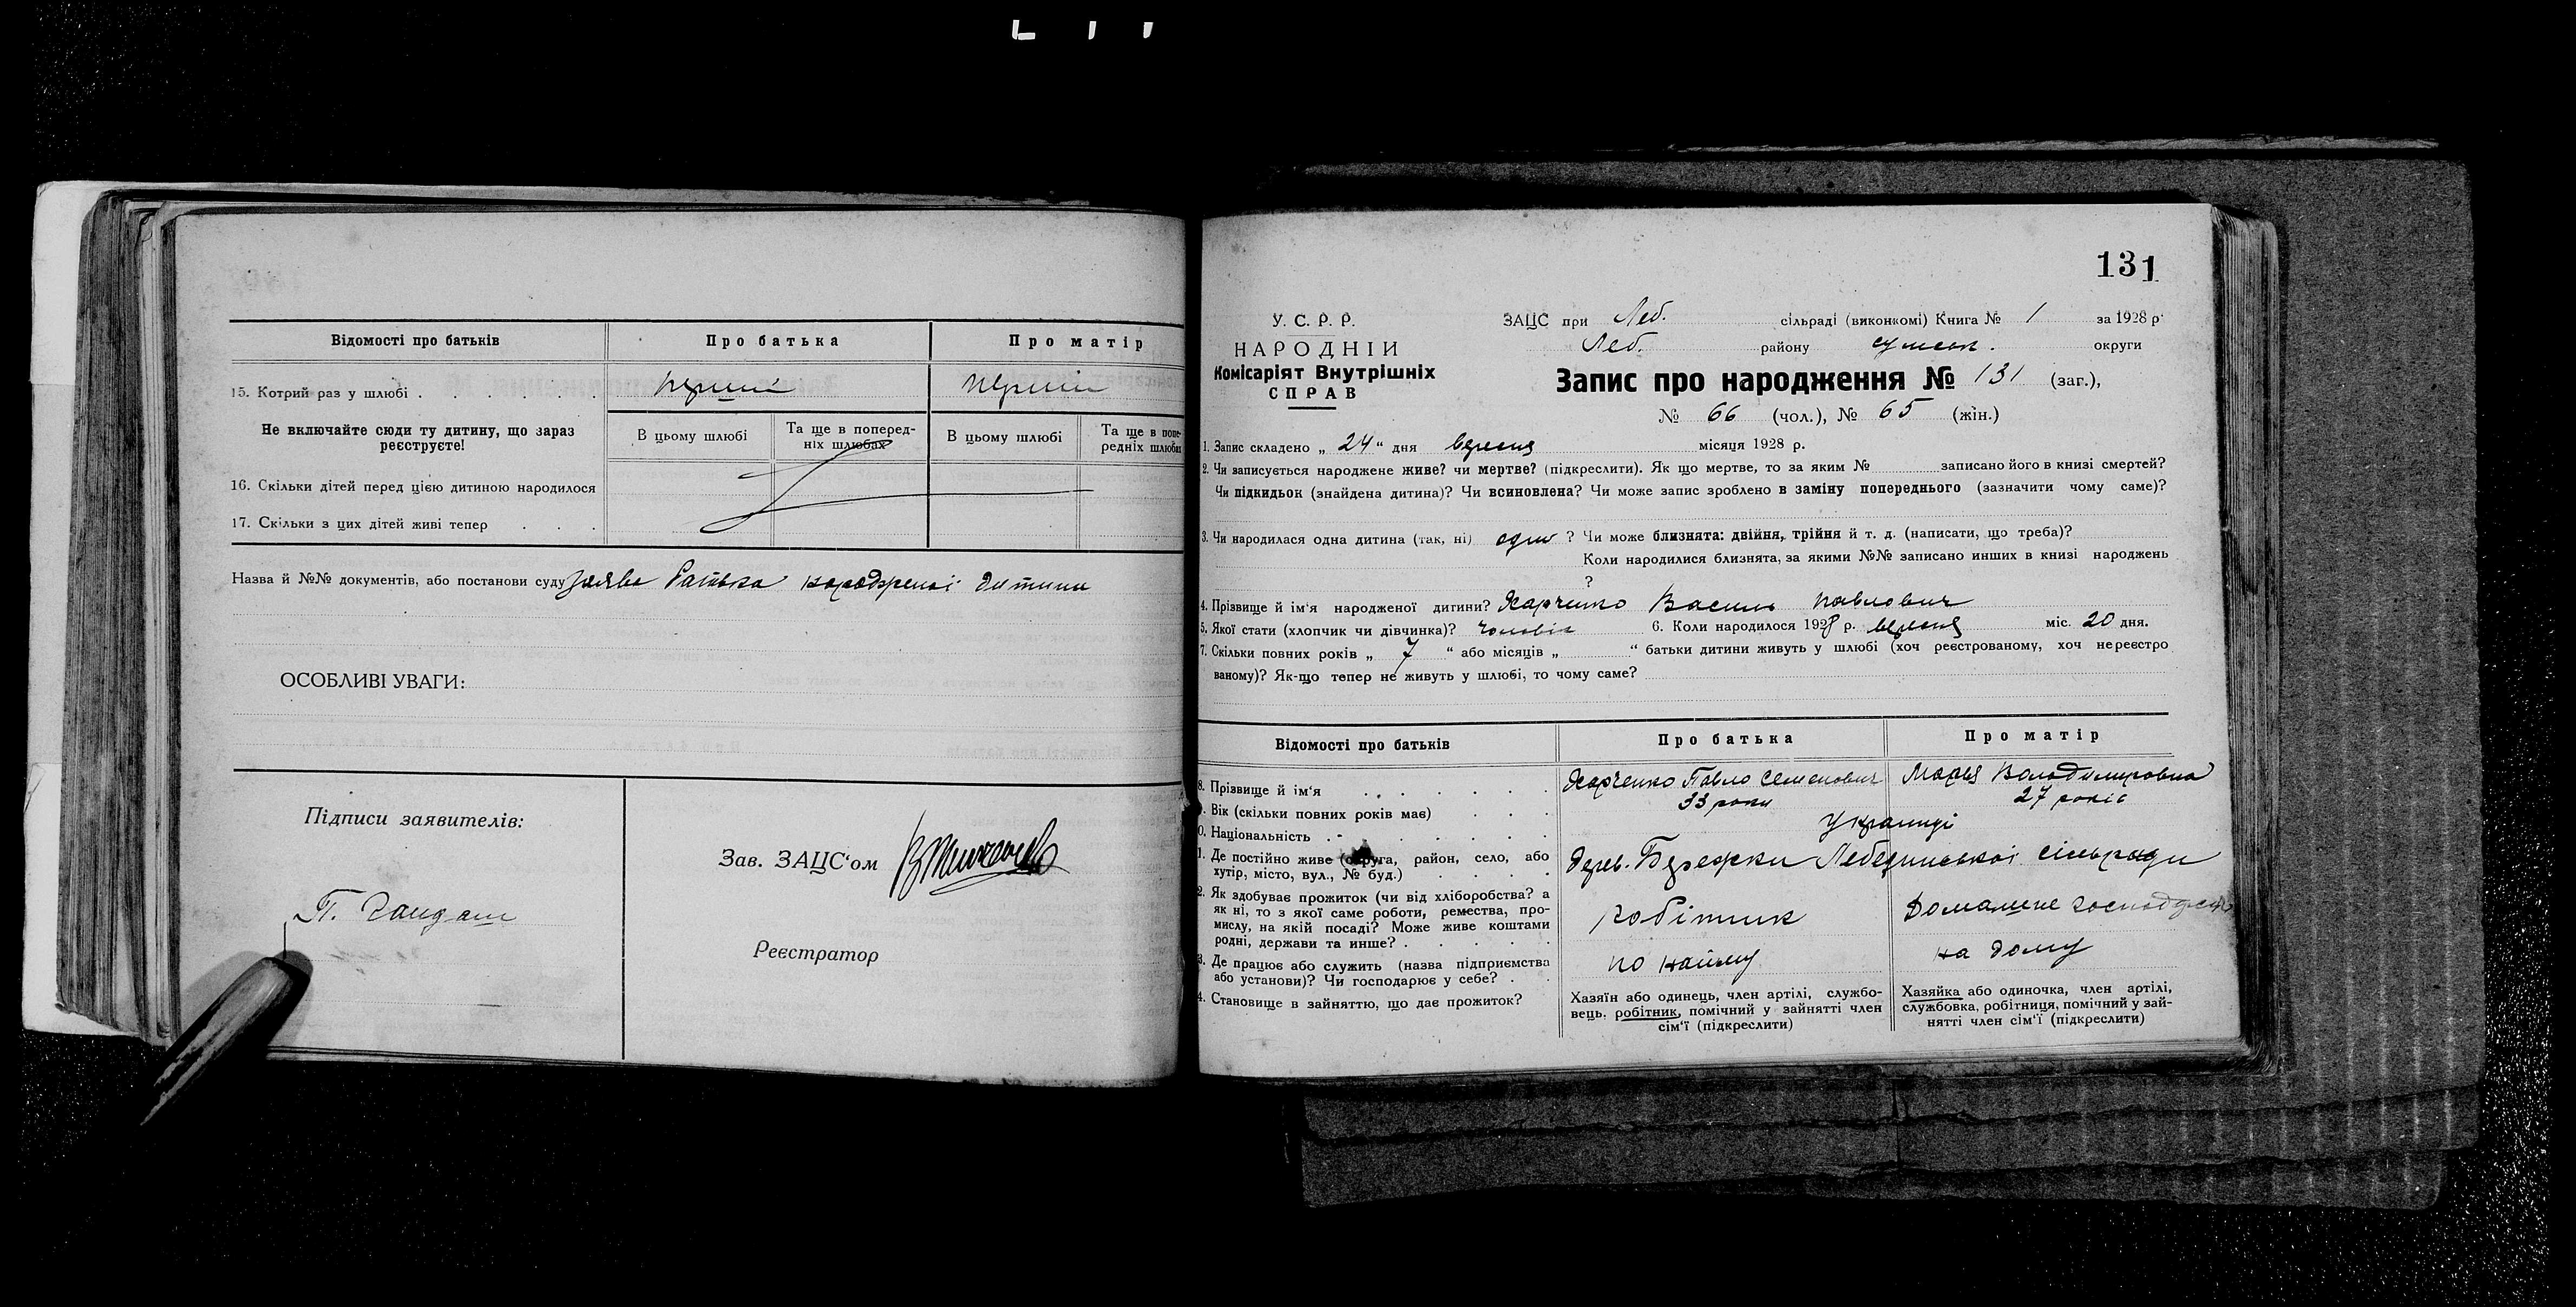 Відомості про батьків Про батька Про матір
15. Котрий раз у шлюбі . . . . . . перший перший
Не включайте сюди ту дитину, що зараз реєструєте!
В цьому шлюбі Та ще в поперед-ніх шлюбах В цьому шлюбі Та ще в попе-редніх шлюбах
16. Скільки дітей перед цією дитиною народилося
17. Скільки з цих дітей живі тепер . . .
Назва й №№ документів, або постанови суду заява батька народженої дитини
ОСОБЛИВІ УВАГИ:
Підписи заявителів:
Зав. ЗАЦС'ом
Реєстратор
131
У. С. Р. Р.
НАРОДНІЙ
Комісаріят Внутрішніх
СПРАВ
ЗАЦС при Леб. сільраді (виконкомі) Книга № 1 за 1928 р.
Леб. району Сумськ. округи
Запис про народження № 131 (заг.),
№ 66 (чол.), № 65 (жін.)
1. Запис складено „ 24 “ дня вересня місяця 1928 р.
2. Чи записується народжене живе? чи мертве? (підкреслити). Як що мертве, то за яким № записано його в книзі смертей?
Чи підкидьок (знайдена дитина)? Чи всиновлена? Чи може запис зроблено в заміну попереднього (зазначити чому саме)?
3. Чи народилася одна дитина (так, ні) одно ? Чи може близнята: двійня, трійня й т. д. (написати, що треба)?
Коли народилися близнята, за якими №№ записано инших в книзі народжень
?
4. Прізвище й ім'я народженої дитини? Харченко Василь Павлович
5. Якої стати (хлопчик чи дівчинка)? чоловік 6. Коли народилося 1928 р. вересня міс. 20 дня.
7. Скільки повних років „ 7 “ або місяців „ “ батьки дитини живуть у шлюбі (хоч реєстрованому, хоч нереєстро
ваному)? Як-що тепер не живуть у шлюбі, то чому саме?
Відомості про батьків Про батька Про матір
8. Прізвище й ім'я . . . . . . . Харченко Павло Семенович Марья Володимировна
9. Вік (скільки повних років має) . . . 33 роки 27 років
0. Національність . . . . . . . Украинці
1. Де постійно живе (округа, район, село, або
хутір, місто, вул., № буд.) . . . . дерев. Бережки Лебединської сільради
2. Як здобуває прожиток (чи від хліборобства? а
як ні, то з якої саме роботи, ремества, про-
мислу, на якій посаді? Може живе коштами
родні, держави та инше? . . . . . робітник Домашнє
3. Де працює або служить (назва підприємства
або установи)? Чи господарює у себе? . . по найму на дому
4. Становище в зайняттю, що дає прожиток?
Хазяїн або одинець, член артілі, службо-
вець, робітник, помічний у зайнятті член
сім'ї (підкреслити)
Хазяйка або одиночка, член артілі,
службовка, робітниця, помічний у зай-
нятті член сім'ї (підкреслити)